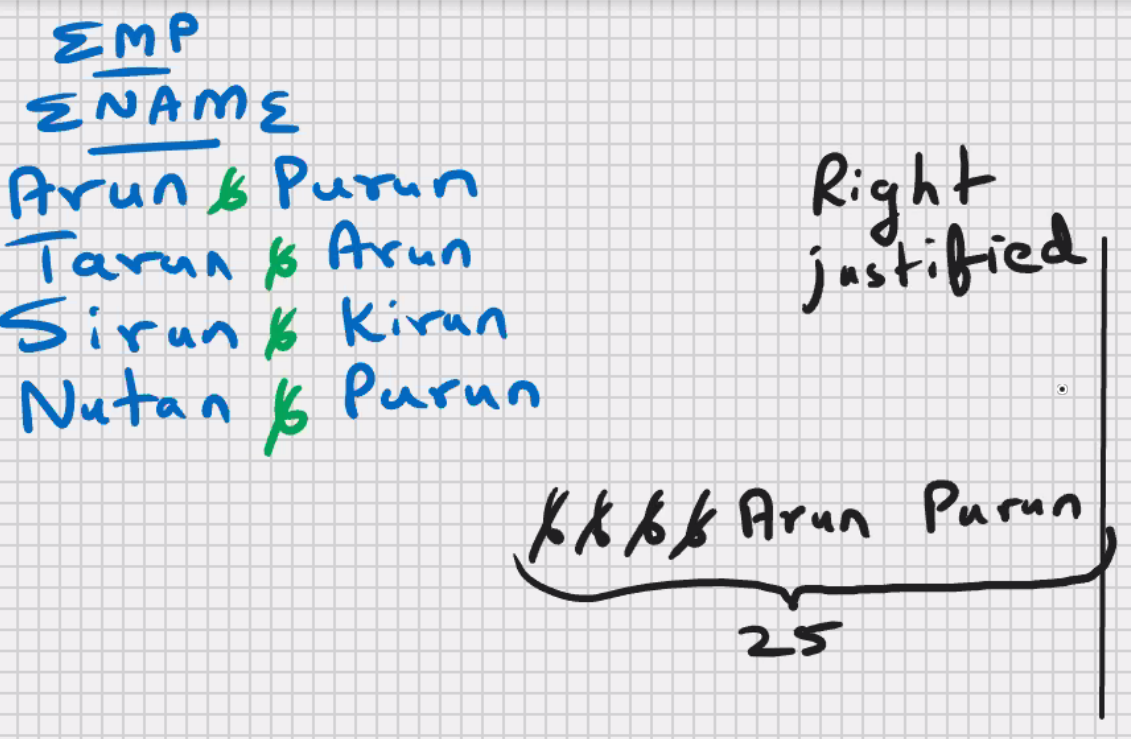 EMP
ENAME
Arun ƀ Purun
Tarun ƀ Arun
Sirun ƀ Kirun
Nutan ƀ Purun
Right
justified
ƀ ƀ ƀ ƀ Arun Purun
25